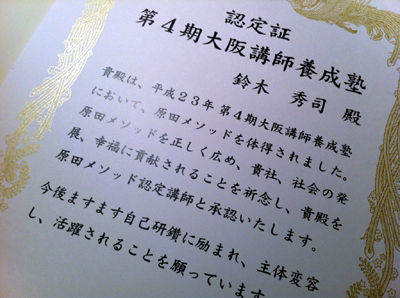 認定証
第4期大阪講師養成塾
鈴木 秀司 殿
貴殿は、平成23年第4期大阪講師養成塾
において、原田メソッドを体得されました。
原田メソッドを正しく広め、貴社、社会の発
展、幸福に貢献されることを祈念し、貴殿を
原田メソッド認定講師と承認いたします。
今後ますます自己研鑽に励まれ、主体変容
し、活躍されることを願っています